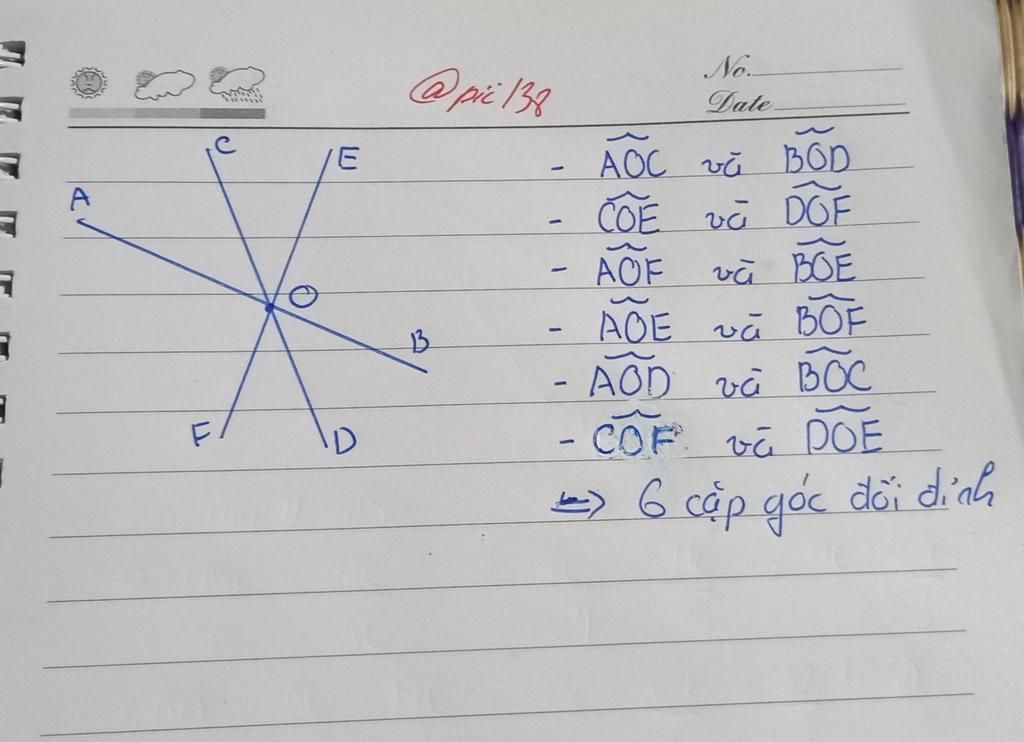 No.
@pic138
Date
C
E
A
O
B
F
D
- AOC và BOD
- COE và DOF
- AOF và BOE
- AOE và BOF
- AOD và BOC
- COF và DOE
=> 6 cặp góc đối đỉnh